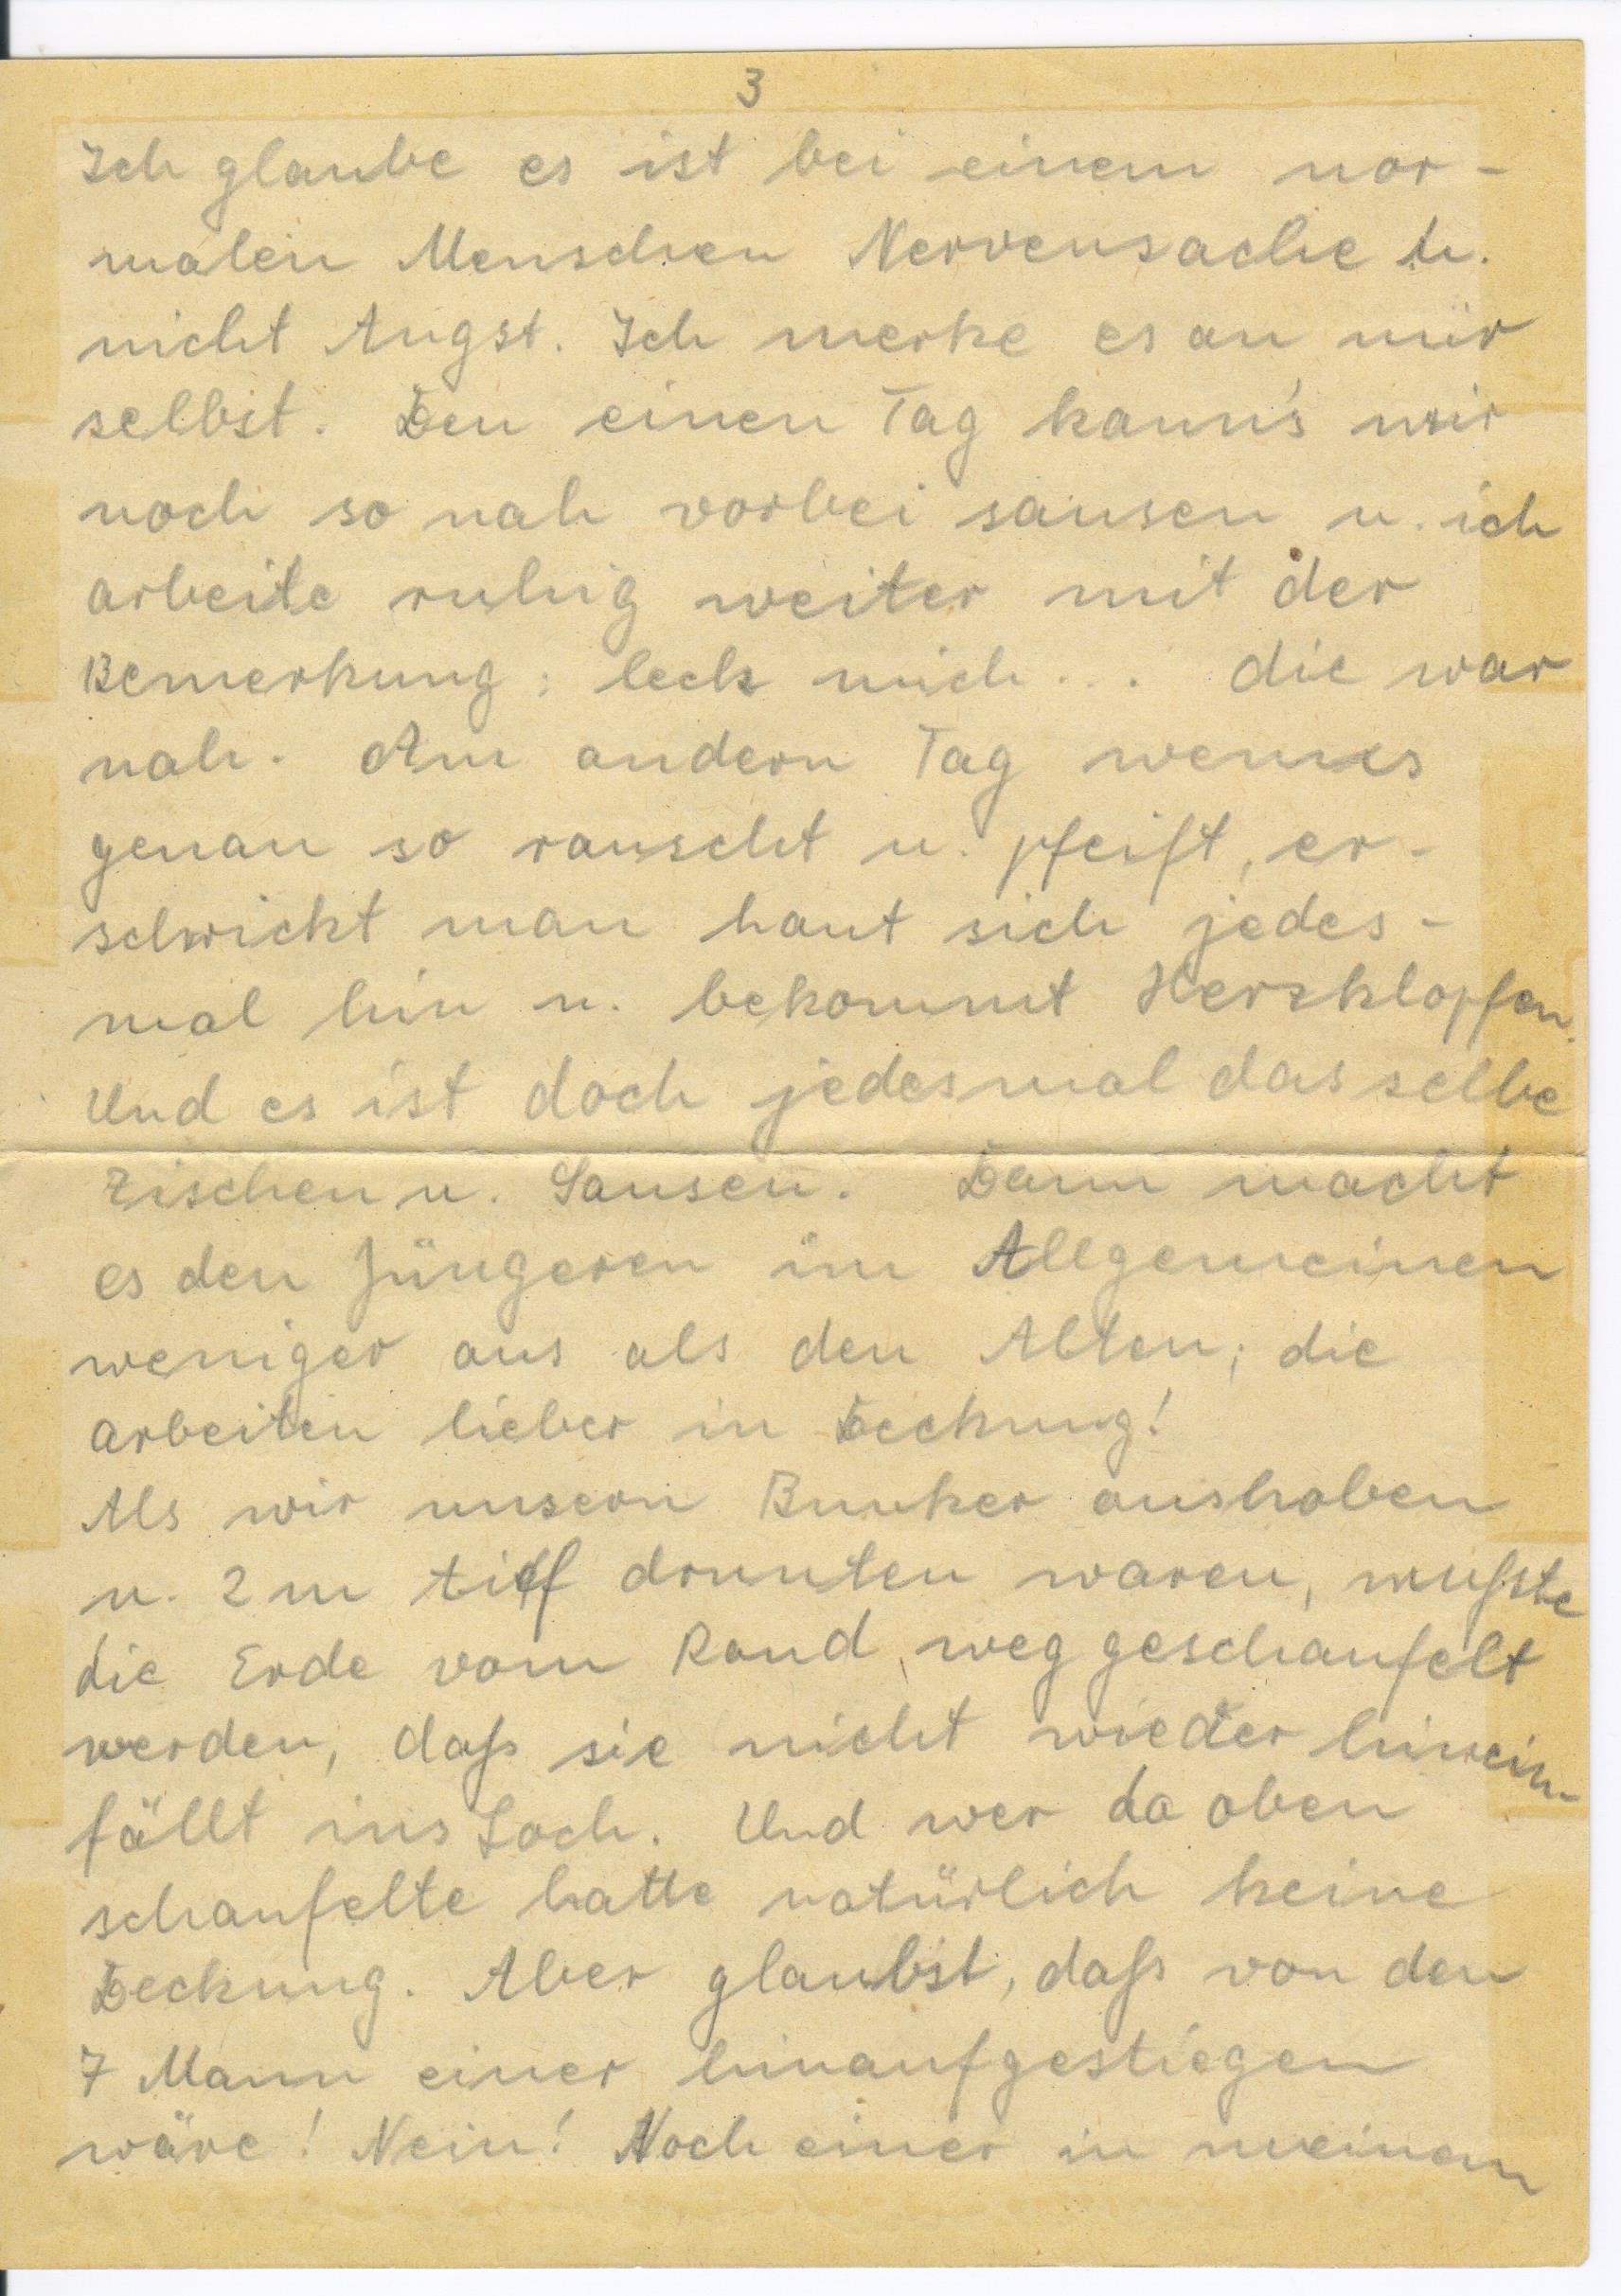 3
Ich glaube es ist bei einem nor-
malen Menschen Nervensache u.
nicht Angst. Ich merke es an mir
selbst. Den einen Tag kann's mir
noch so nah vorbei sausen u. ich
arbeite ruhig weiter mit der
Bemerkung: leck mich... die war
nah. Am andern Tag wenn es
genau so rauscht u. pfeift, er-
schrickt man haut sich jedes-
mal hin u. bekommt Herzklopfen.
Und es ist doch jedesmal das selbe
Zischen u. Sausen. Dann macht
es den Jüngeren im Allgemeinen
weniger aus als den Alten; die
arbeiten lieber in Deckung!
Als wir unsern Bunker aushoben
u. 2 m tief drunten waren, mußte
die Erde vom Rand weg geschaufelt
werden, daß sie nicht wieder hinein-
fällt ins Loch. Und wer da oben
schaufelte hatte natürlich keine
Deckung. Aber glaubst, daß von den
7 Mann einer hinaufgestiegen
wäre! Nein! Noch einer in meinem